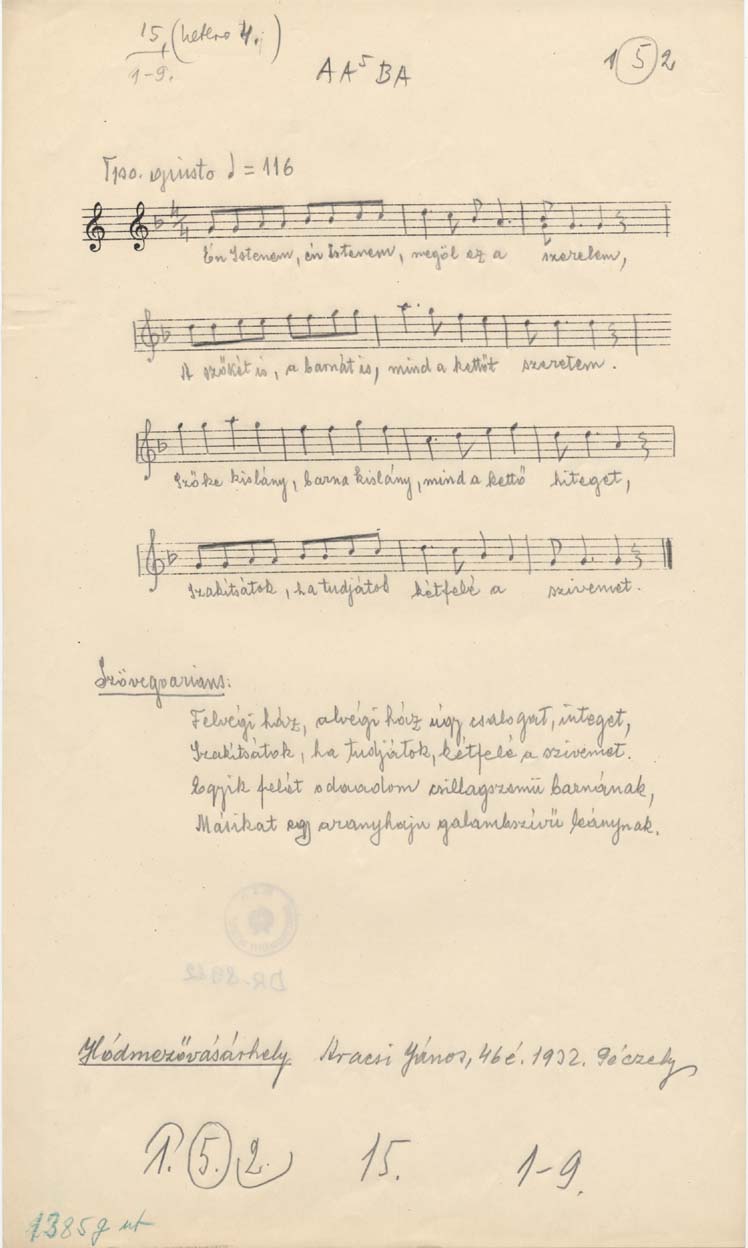 15, (hetero 4.)
1-9.
A A⁵ B A
1 5 2
Tpo. giusto ♩ = 116
4/4
Én Istenem, én Istenem, megöl ez a szerelem,
A szőkét is, a barnát is, mind a kettőt szeretem.
Szőke kislány, barna kislány, mind a kettő hiteget,
Szakítsátok, ha tudjátok kétfelé a szivemet.
Szövegvarians:
Felvégi ház, alvégi ház úgy csalogat, integet,
Szakítsátok, ha tudjátok, kétfelé a szivemet.
Egyik felét odaadom csillagszemü barnának,
Másikat egy aranyhaju galambszívü leánynak.
DR-8912
Hódmezővásárhely Aracsi János, 46 é. 1932. Póczely
1. 5. 2. 15. 1-9.